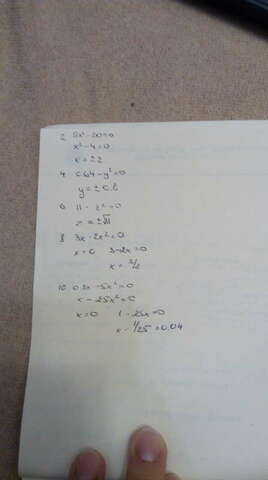 2. 5x² - 20 = 0
x² - 4 = 0
x = ± 2
4. 0.64 - y² = 0
y = ± 0.8
6. 11 - z² = 0
z = ±√11
8. 3x - 2x² = 0
x = 0 3 - 2x = 0
x = 3/2
10. 0.2x - 5x² = 0
x - 25x² = 0
x = 0 1 - 25x = 0
x = 1/25 = 0.04